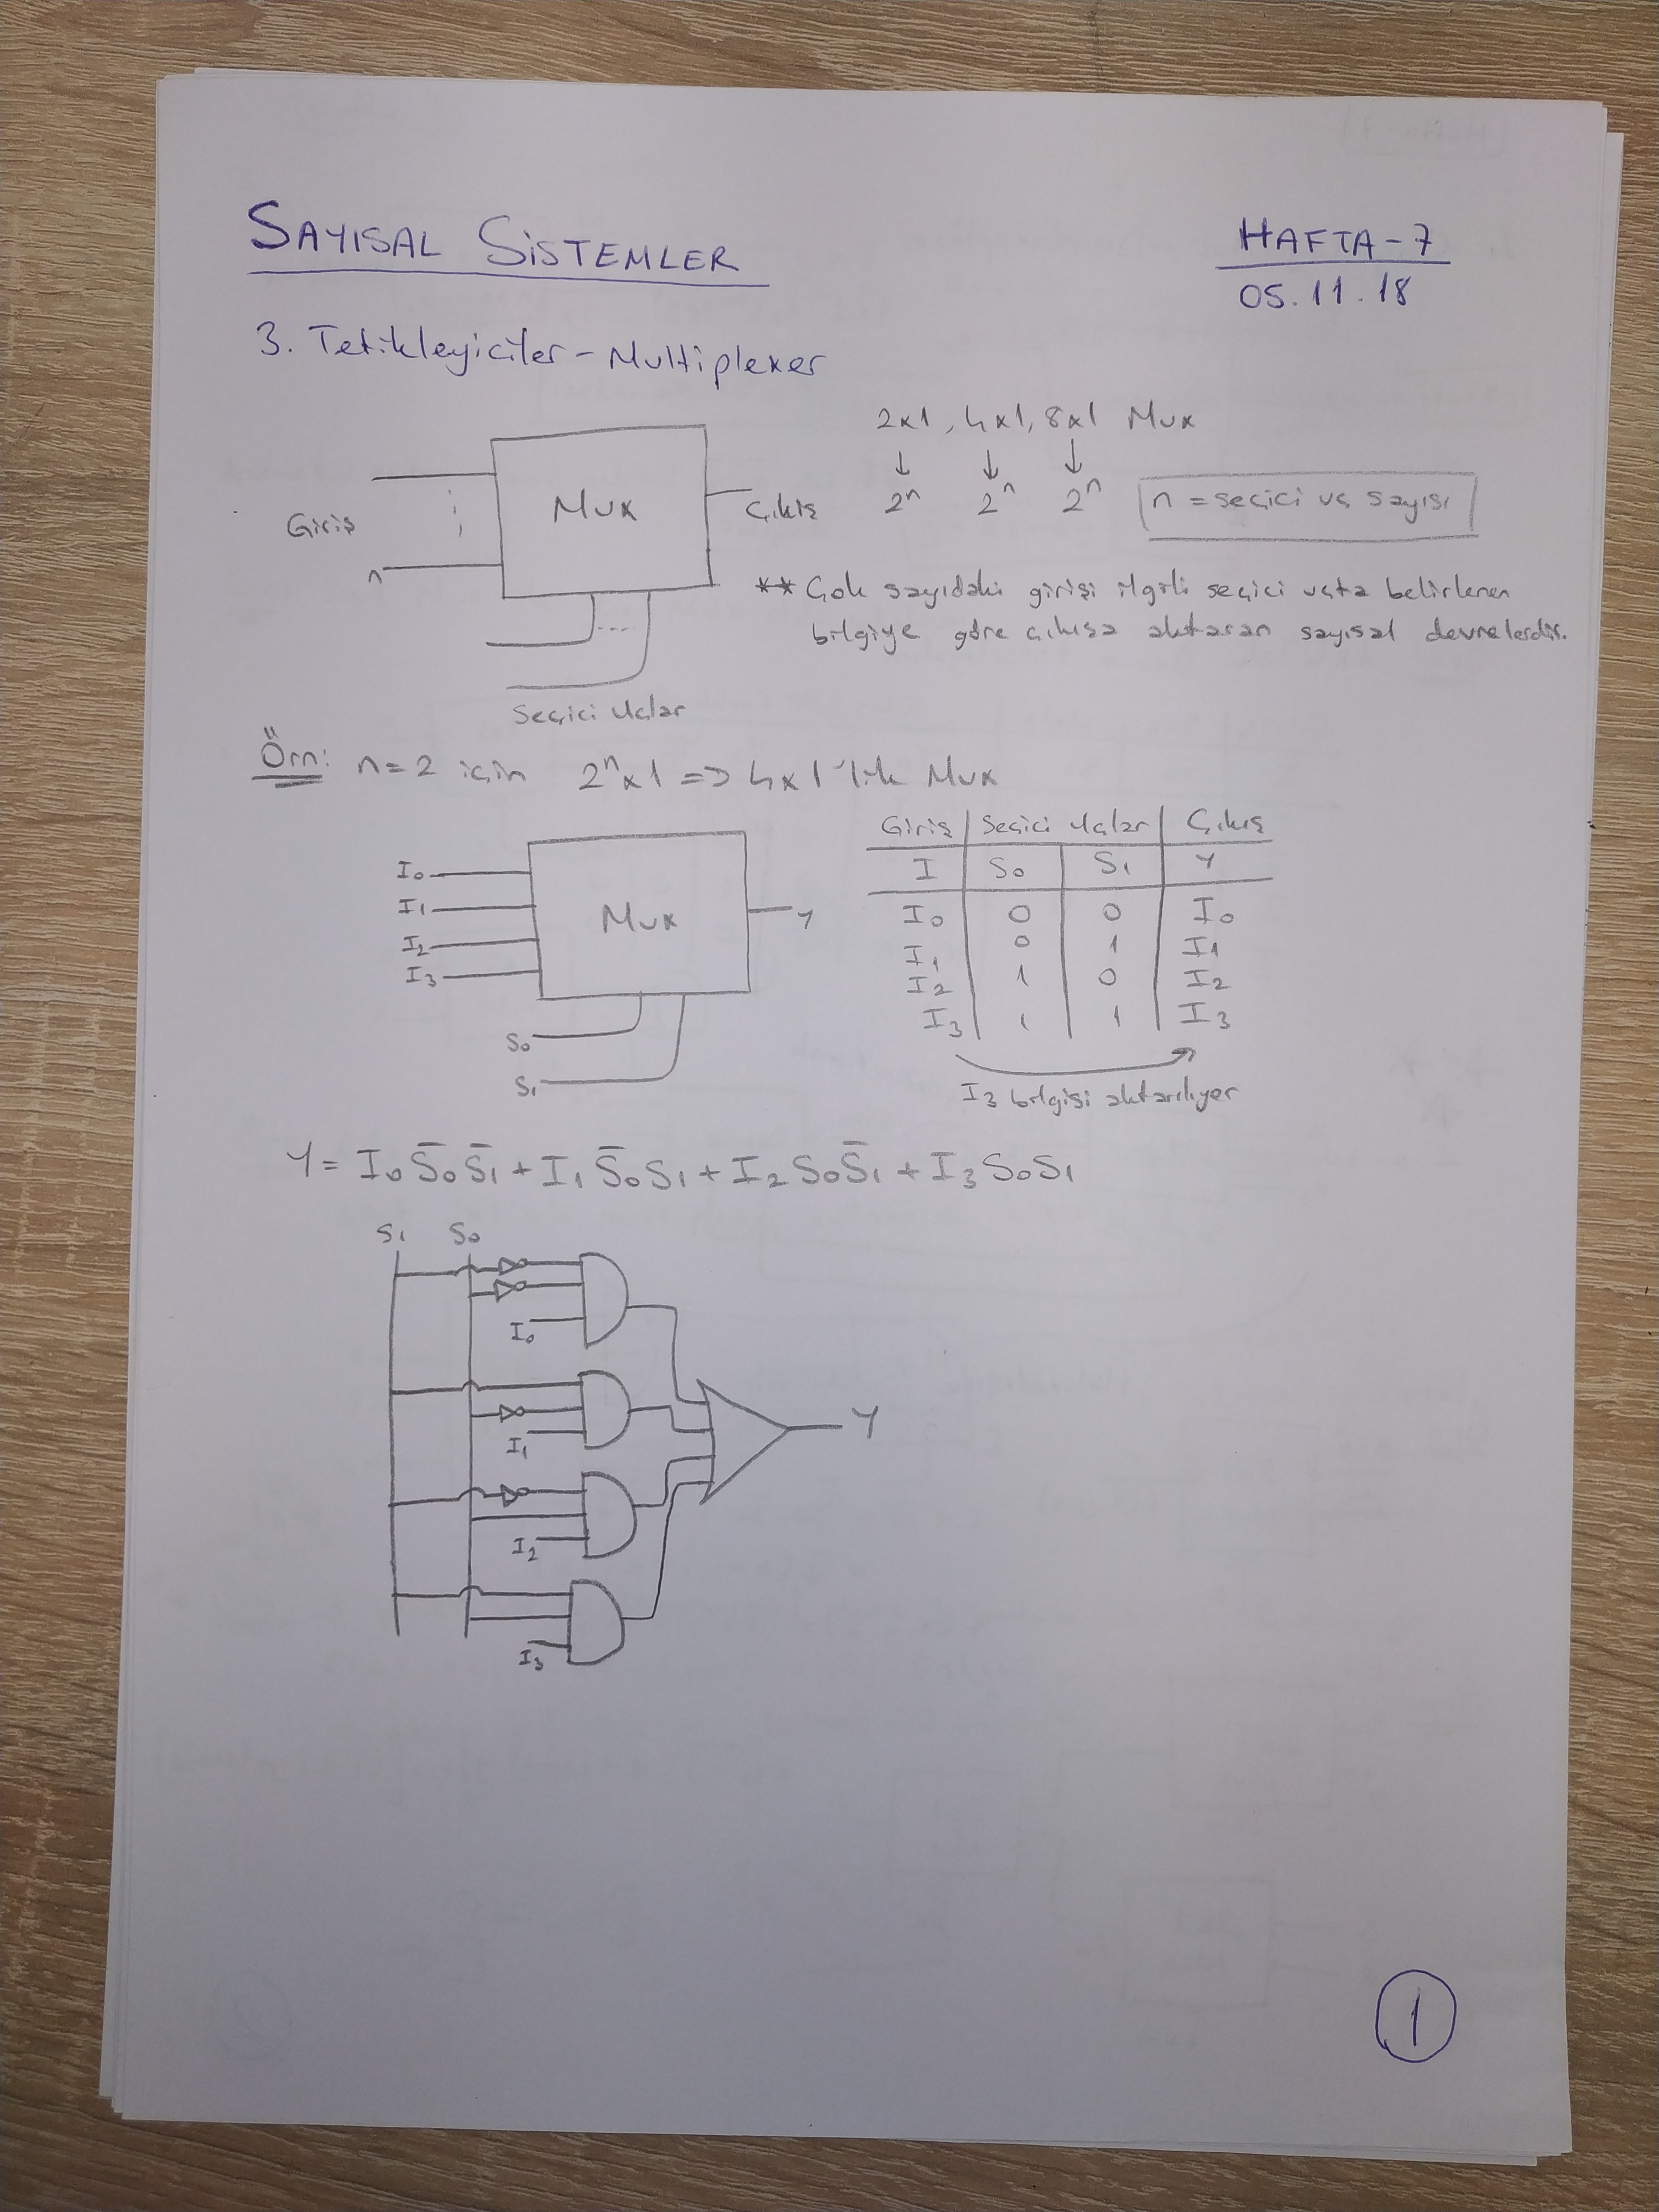 SAYISAL SİSTEMLER
HAFTA-7
05.11.18
3. Tetikleyiciler - Multiplexer
2x1, 4x1, 8x1 Mux
↓ ↓ ↓
2ⁿ 2ⁿ 2ⁿ
n = seçici uç sayısı
Giriş
n
Mux
Çıkış
Seçici Uçlar
** Çok sayıdaki girişi ilgili seçici uçta belirlenen
bilgiye göre çıkışa aktaran sayısal devrelerdir.
Örn: n=2 için 2ⁿx1 => 4x1'lik Mux
I₀
I₁
I₂
I₃
Mux
Y
S₀
S₁
Giriş | Seçici Uçlar | Çıkış
I | S₀ | S₁ | Y
I₀ | 0 | 0 | I₀
I₁ | 0 | 1 | I₁
I₂ | 1 | 0 | I₂
I₃ | 1 | 1 | I₃
I₃ bilgisi aktarılıyor
Y = I₀S̅₀S̅₁ + I₁S̅₀S₁ + I₂S₀S̅₁ + I₃S₀S₁
S₁ S₀
I₀
I₁
I₂
I₃
Y
1